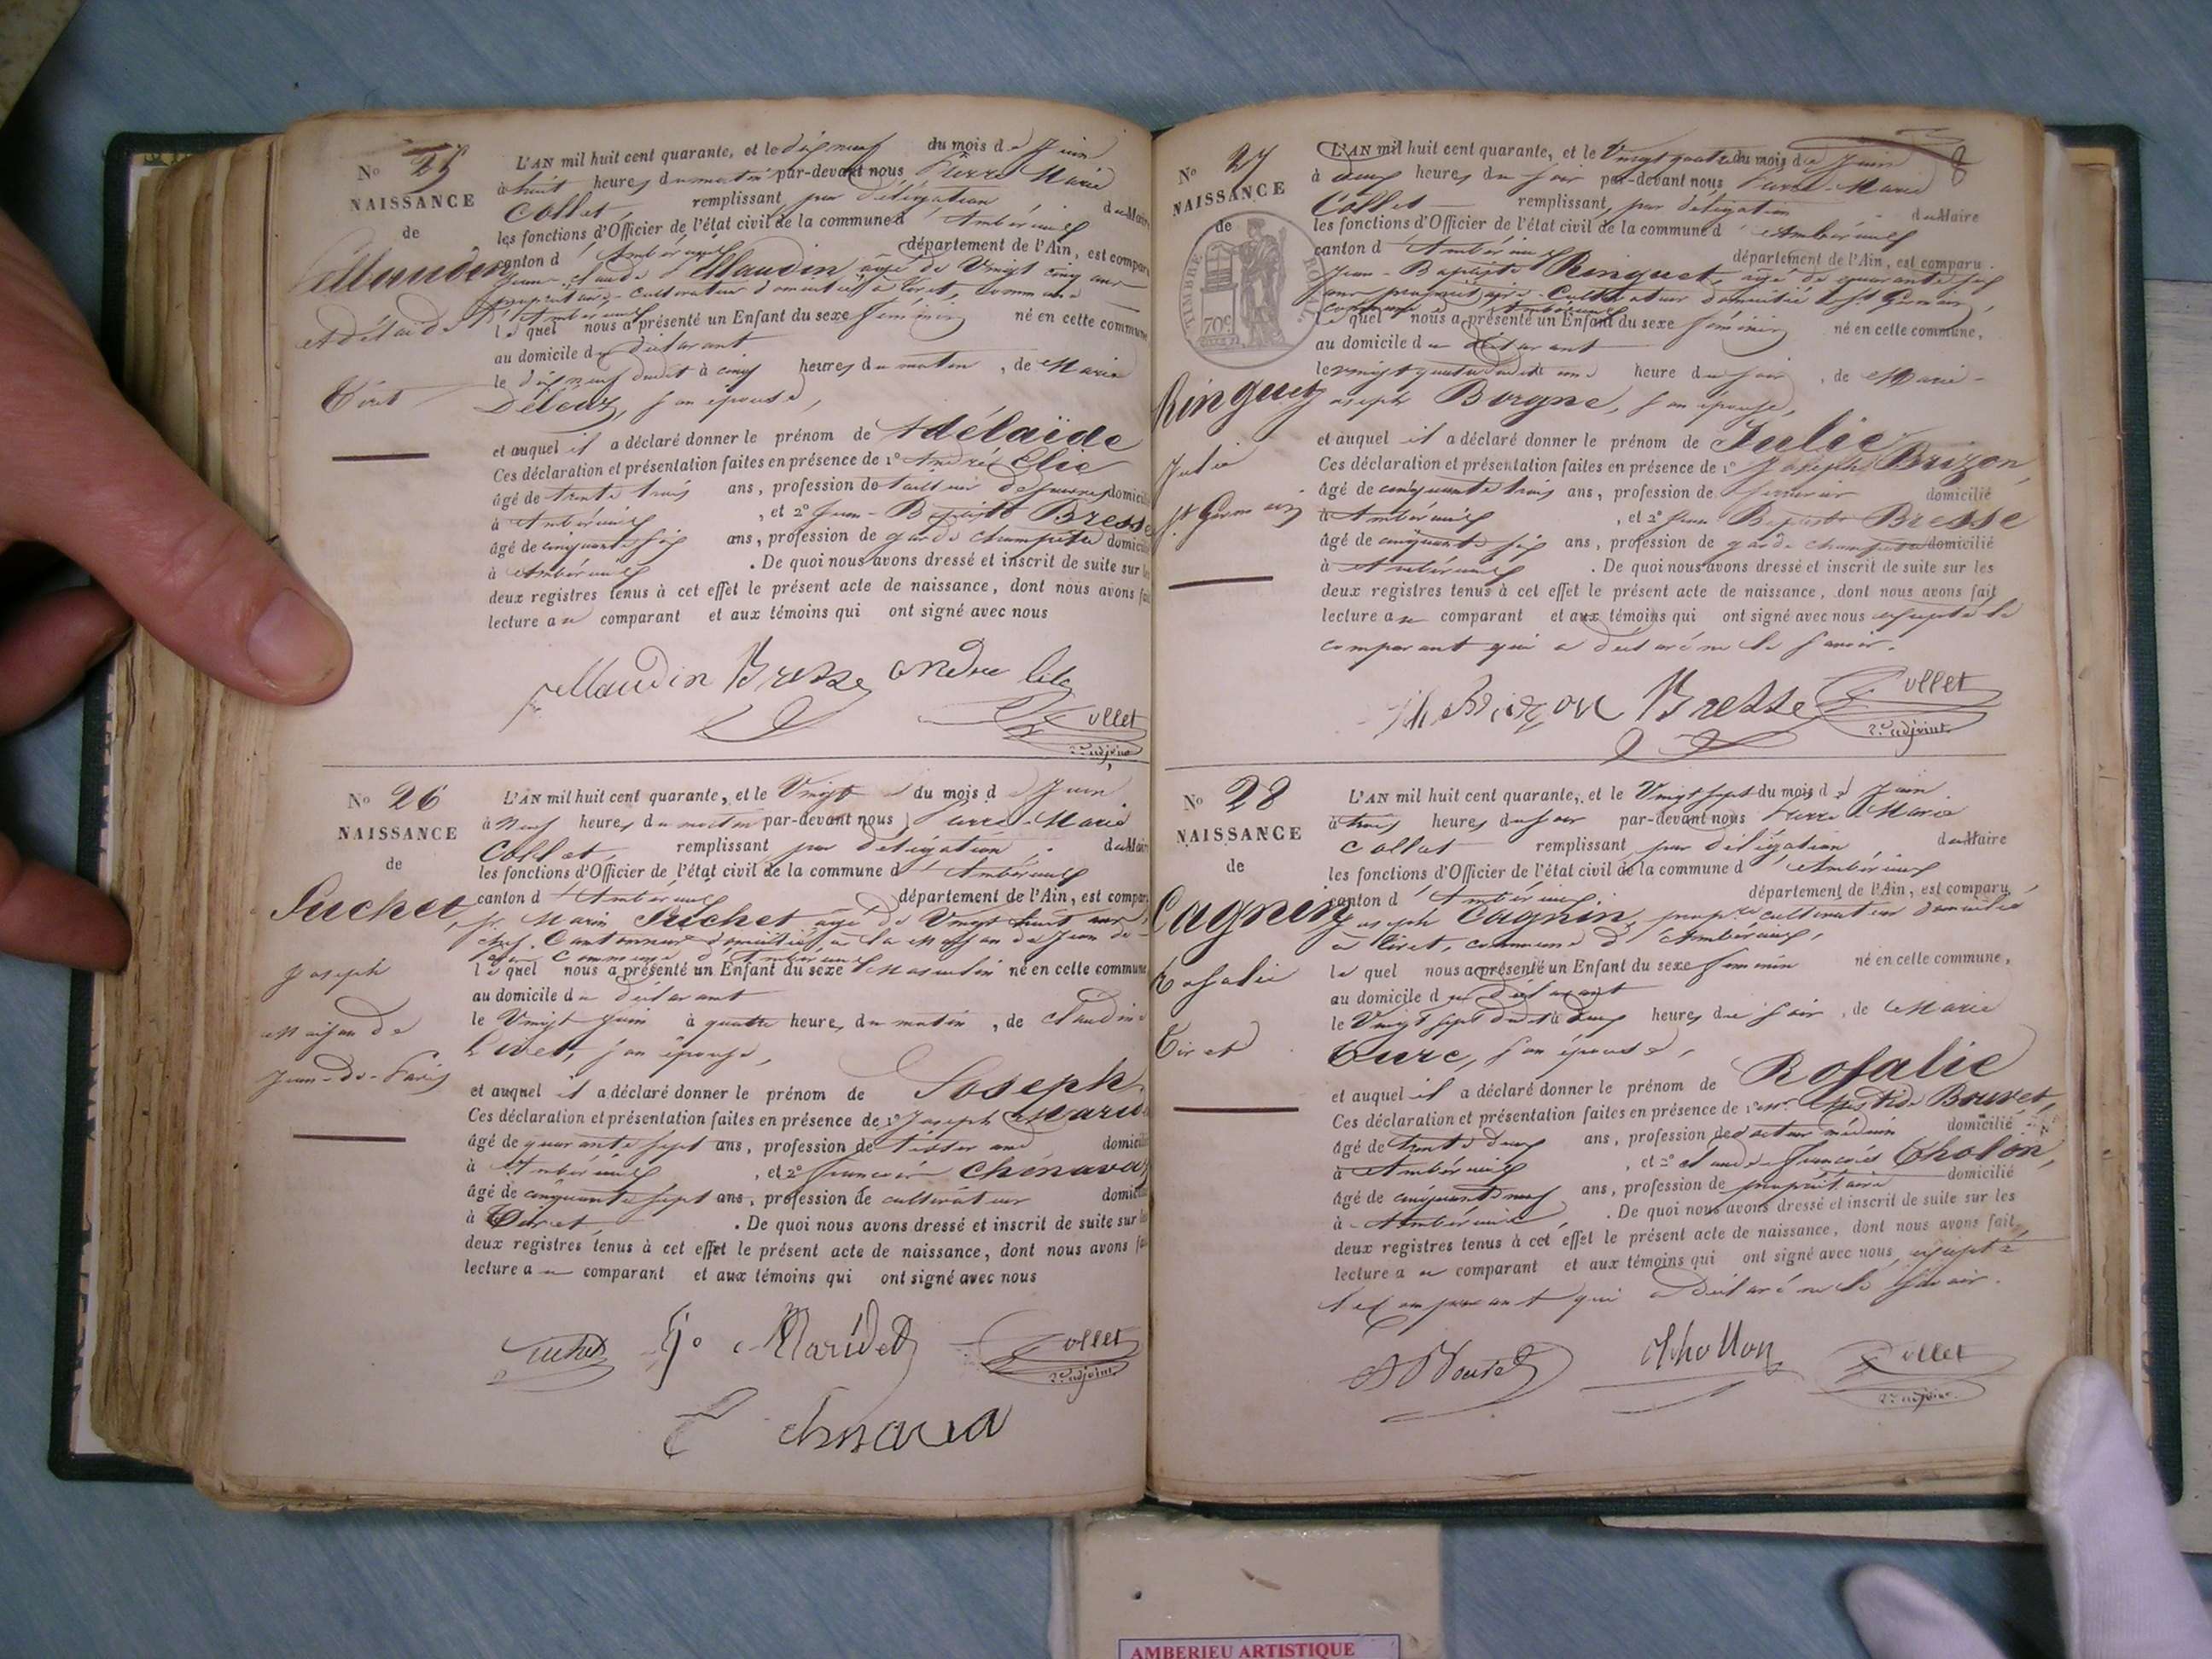 No 25
NAISSANCE
de
Maudin
Adélaïde
Tiret
L'AN mil huit cent quarante, et le dix neuf du mois de Juin
à huit heures du matin par-devant nous Pierre Marie
Collet, remplissant par délégation du Maire
les fonctions d'Officier de l'état civil de la commune d'Ambérieux
canton d'Ambérieux département de l'Ain, est comparu
Jean-Claude Maudin âgé de Vingt cinq ans
propriétaire-cultivateur domicilié à Tiret, commune
d'Ambérieux
le quel nous a présenté un Enfant du sexe féminin né en cette commune
au domicile du déclarant
le dix neuf dudit à cinq heures du matin, de Marie
son épouse,
et auquel il a déclaré donner le prénom de Adélaïde
Ces déclaration et présentation faites en présence de 1o André Elie
âgé de trente trois ans, profession de domicilié
à Ambérieux, et 2o Jean-Baptiste Bresse
âgé de cinquante six ans, profession de garde champêtre domicilié
à Ambérieux. De quoi nous avons dressé et inscrit de suite sur les
deux registres tenus à cet effet le présent acte de naissance, dont nous avons fait
lecture au comparant et aux témoins qui ont signé avec nous
Maudin Bresse andré Collet
2e adjoint
No 26
NAISSANCE
de
Suchet,
Joseph
Maison de
Jean-de-Paris
L'AN mil huit cent quarante, et le Vingt du mois de Juin
à Neuf heures du matin par-devant nous Pierre-Marie
Collet, remplissant par délégation du Maire
les fonctions d'Officier de l'état civil de la commune d'Ambérieux
canton d'Ambérieux département de l'Ain, est comparu
Marin Suchet âgé de Vingt huit ans,
chef Cantonnier domicilié à la Maison de Jean de
Paris commune d'Ambérieux
le quel nous a présenté un Enfant du sexe Masculin né en cette commune
au domicile du déclarant
le Vingt Juin à quatre heures du matin, de Claudine
Livet, son épouse,
et auquel il a déclaré donner le prénom de Joseph
Ces déclaration et présentation faites en présence de 1o Joseph
âgé de quarante sept ans, profession de domicilié
à Ambérieux, et 2o François Chenavaz
âgé de cinquante sept ans, profession de cultivateur domicilié
à Tiret. De quoi nous avons dressé et inscrit de suite sur les
deux registres tenus à cet effet le présent acte de naissance, dont nous avons fait
lecture au comparant et aux témoins qui ont signé avec nous
Suchet Maridet Collet
2e adjoint
No 27
NAISSANCE
de
TIMBRE ROYAL
70c
Ringuet
Julie
St Germain
8
L'AN mil huit cent quarante, et le Vingt quatre du mois de Juin
à deux heures du soir par-devant nous Pierre-Marie
Collet remplissant, par délégation du Maire
les fonctions d'Officier de l'état civil de la commune d'Ambérieux
canton d'Ambérieux département de l'Ain, est comparu
Jean-Baptiste Ringuet, âgé de quarante six
ans propriétaire-Cultivateur domicilié à St Germain,
commune d'Ambérieux
le quel nous a présenté un Enfant du sexe féminin né en cette commune,
au domicile du déclarant
le vingt quatre dudit à une heure du soir, de Marie-
Joseph Borgne, son épouse,
et auquel il a déclaré donner le prénom de Julie
Ces déclaration et présentation faites en présence de 1o Joseph Brizon,
âgé de cinquante trois ans, profession de serrurier domicilié
à Ambérieux, et 2o Jean Baptiste Bresse
âgé de cinquante six ans, profession de garde champêtre domicilié
à Ambérieux. De quoi nous avons dressé et inscrit de suite sur les
deux registres tenus à cet effet le présent acte de naissance, dont nous avons fait
lecture au comparant et aux témoins qui ont signé avec nous excepté le
comparant qui a déclaré ne le savoir.
Brizon Bresse Collet
2e adjoint
No 28
NAISSANCE
de
Cagnin
Rosalie
Tiret
L'AN mil huit cent quarante, et le Vingt sept du mois de Juin
à trois heures du soir par-devant nous Pierre Marie
Collet remplissant par délégation du Maire
les fonctions d'Officier de l'état civil de la commune d'Ambérieux
canton d'Ambérieux département de l'Ain, est comparu
Joseph Cagnin, propre cultivateur domicilié
à Tiret, commune d'Ambérieux,
le quel nous a présenté un Enfant du sexe féminin né en cette commune,
au domicile du déclarant
le Vingt sept dudit à deux heures du soir, de Marie
Turc, son épouse,
et auquel il a déclaré donner le prénom de Rosalie
Ces déclaration et présentation faites en présence de 1o Mr Aristide Bouvet,
âgé de trente deux ans, profession de docteur médecin domicilié
à Ambérieux, et 2o Claude François Tholon,
âgé de cinquante neuf ans, profession de propriétaire domicilié
à Ambérieux. De quoi nous avons dressé et inscrit de suite sur les
deux registres tenus à cet effet le présent acte de naissance, dont nous avons fait,
lecture au comparant et aux témoins qui ont signé avec nous, excepté
le comparant qui a déclaré ne le savoir.
A Bouvet Thollon Collet
2e adjoint
AMBERIEU ARTISTIQUE